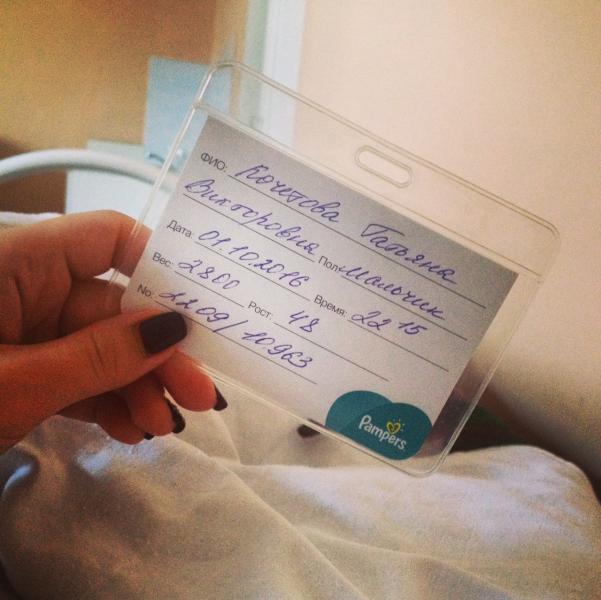 ФИО: Кочетова Татьяна
Викторовна Пол: мальчик
Дата: 01.10.2016 Время: 22 15
Вес: 2800 Рост: 48
No: 1209/10963
Pampers